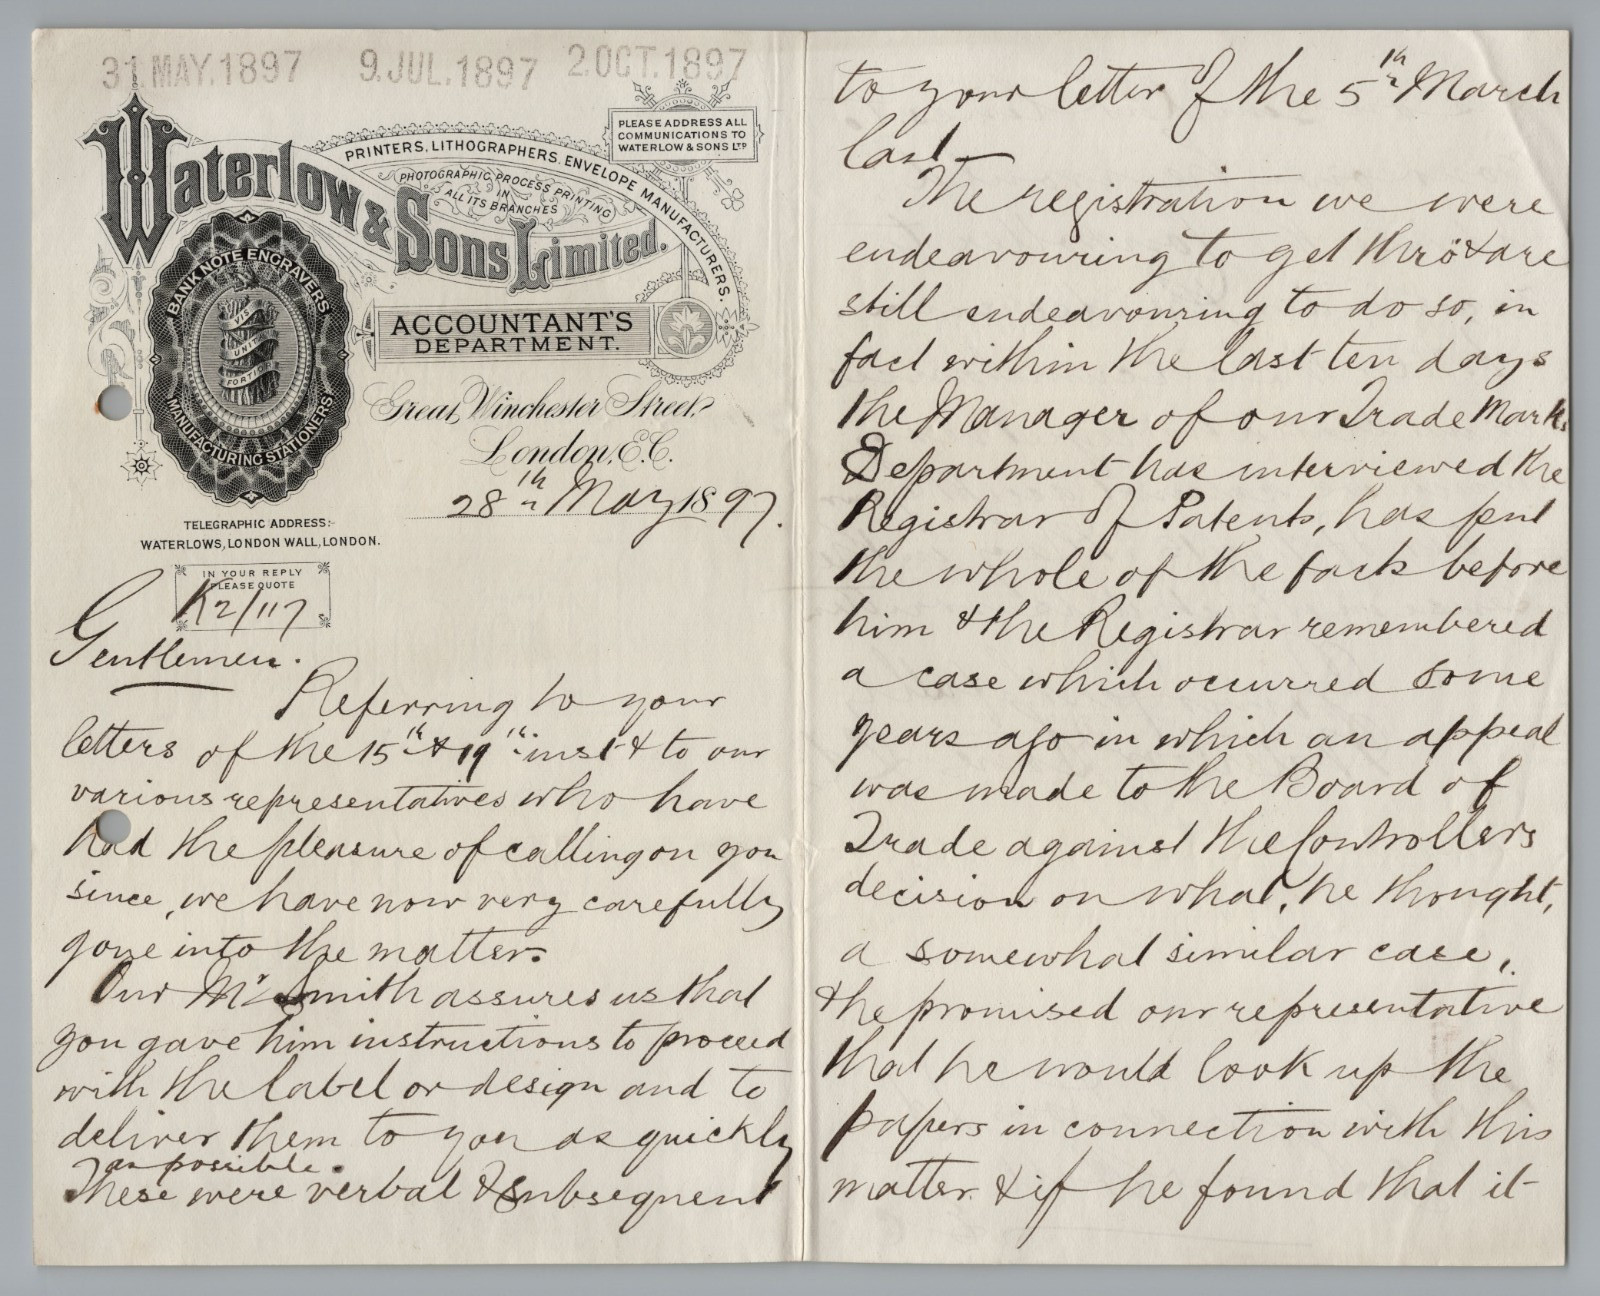 31.MAY.1897 9.JUL.1897 2.OCT.1897
PLEASE ADDRESS ALL
COMMUNICATIONS TO
WATERLOW & SONS LTD
PRINTERS, LITHOGRAPHERS, ENVELOPE MANUFACTURERS.
PHOTOGRAPHIC PROCESS PRINTING
IN
ALL ITS BRANCHES
Waterlow & Sons Limited.
BANK NOTE ENGRAVERS
VIS
UNITA
FORTIOR
MANUFACTURING STATIONERS
ACCOUNTANT'S
DEPARTMENT.
Great Winchester Street,
London, E.C.
28th May 1897.
TELEGRAPHIC ADDRESS:-
WATERLOWS, LONDON WALL, LONDON.
IN YOUR REPLY
PLEASE QUOTE
K2/117
Gentlemen.
Referring to your
letters of the 15th & 19th inst & to our
various representatives who have
had the pleasure of calling on you
since, we have now very carefully
gone into the matter.
Our Mr Smith assures us that
you gave him instructions to proceed
with the label or design and to
deliver them to you as quickly
as possible.
These were verbal & subsequent
to your letter of the 5th March
last.
The registration we were
endeavouring to get thro & are
still endeavouring to do so, in
fact within the last ten days
the Manager of our Trade Marks
Department has interviewed the
Registrar of Patents, has put
the whole of the facts before
him & the Registrar remembered
a case which occurred some
years ago in which an appeal
was made to the Board of
Trade against the Controllers
decision on what, he thought,
a somewhat similar case,
& he promised our representative
that he would look up the
papers in connection with this
matter & if he found that it